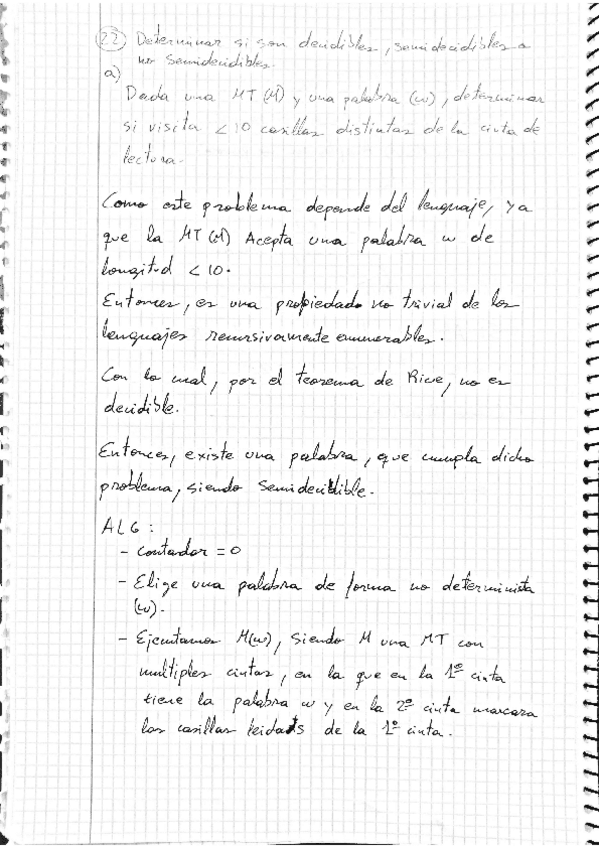 22) Determinar si son decidibles, semidecidibles o
no semidecidibles.
a)
Dada una MT (M) y una palabra (w), determinar
si visita < 10 casillas distintas de la cinta de
lectura.
Como este problema depende del lenguaje, ya
que la MT (M) Acepta una palabra w de
longitud < 10.
Entonces, es una propiedad no trivial de los
lenguajes recursivamente enumerables.
Con lo cual, por el teorema de Rice, no es
decidible.
Entonces, existe una palabra, que cumpla dicho
problema, siendo Semidecidible.
ALG:
- Contador = 0
- Elige una palabra de forma no determinista
(w).
- Ejecutamos M(w), siendo M una MT con
multiples cintas, en la que en la 1º cinta
tiene la palabra w y en la 2º cinta marcara
las casillas leidas de la 1º cinta.